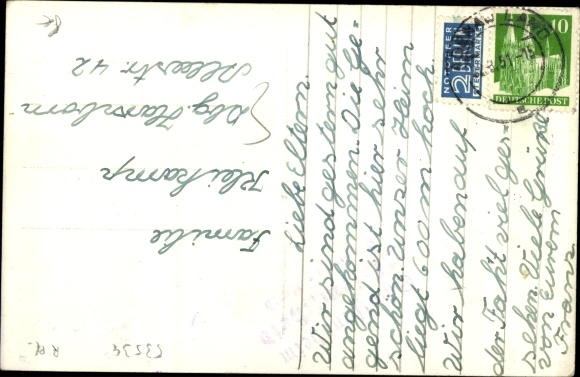 Liebe Eltern.
Wir sind gestern gut
angekommen. Die Ge-
gend ist hier sehr
schön. Unser Heim
liegt 600 m hoch.
Wir haben auf
der Fahrt viel ge-
sehen. Viele Grüße
von Eurem
Franz.
Familie
Kleikamp
Dbg. Hamborn
Alleestr. 42
NOTOPFER
2 BERLIN
STEUERMARKE
10
DEUTSCHE POST
53534